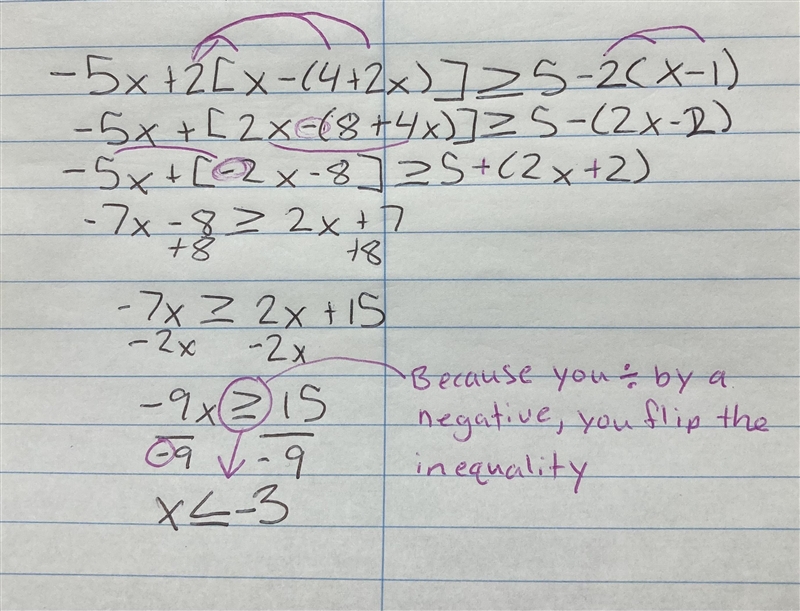 -5x+2[x-(4+2x)]≥5-2(x-1)
-5x+[2x-(8+4x)]≥5-(2x-2)
-5x+[-2x-8]≥5+(2x+2)
-7x-8≥2x+7
+8 +8
-7x≥2x+15
-2x -2x
-9x≥15
-9 -9
x≤-3
Because you ÷ by a
negative, you flip the
inequality